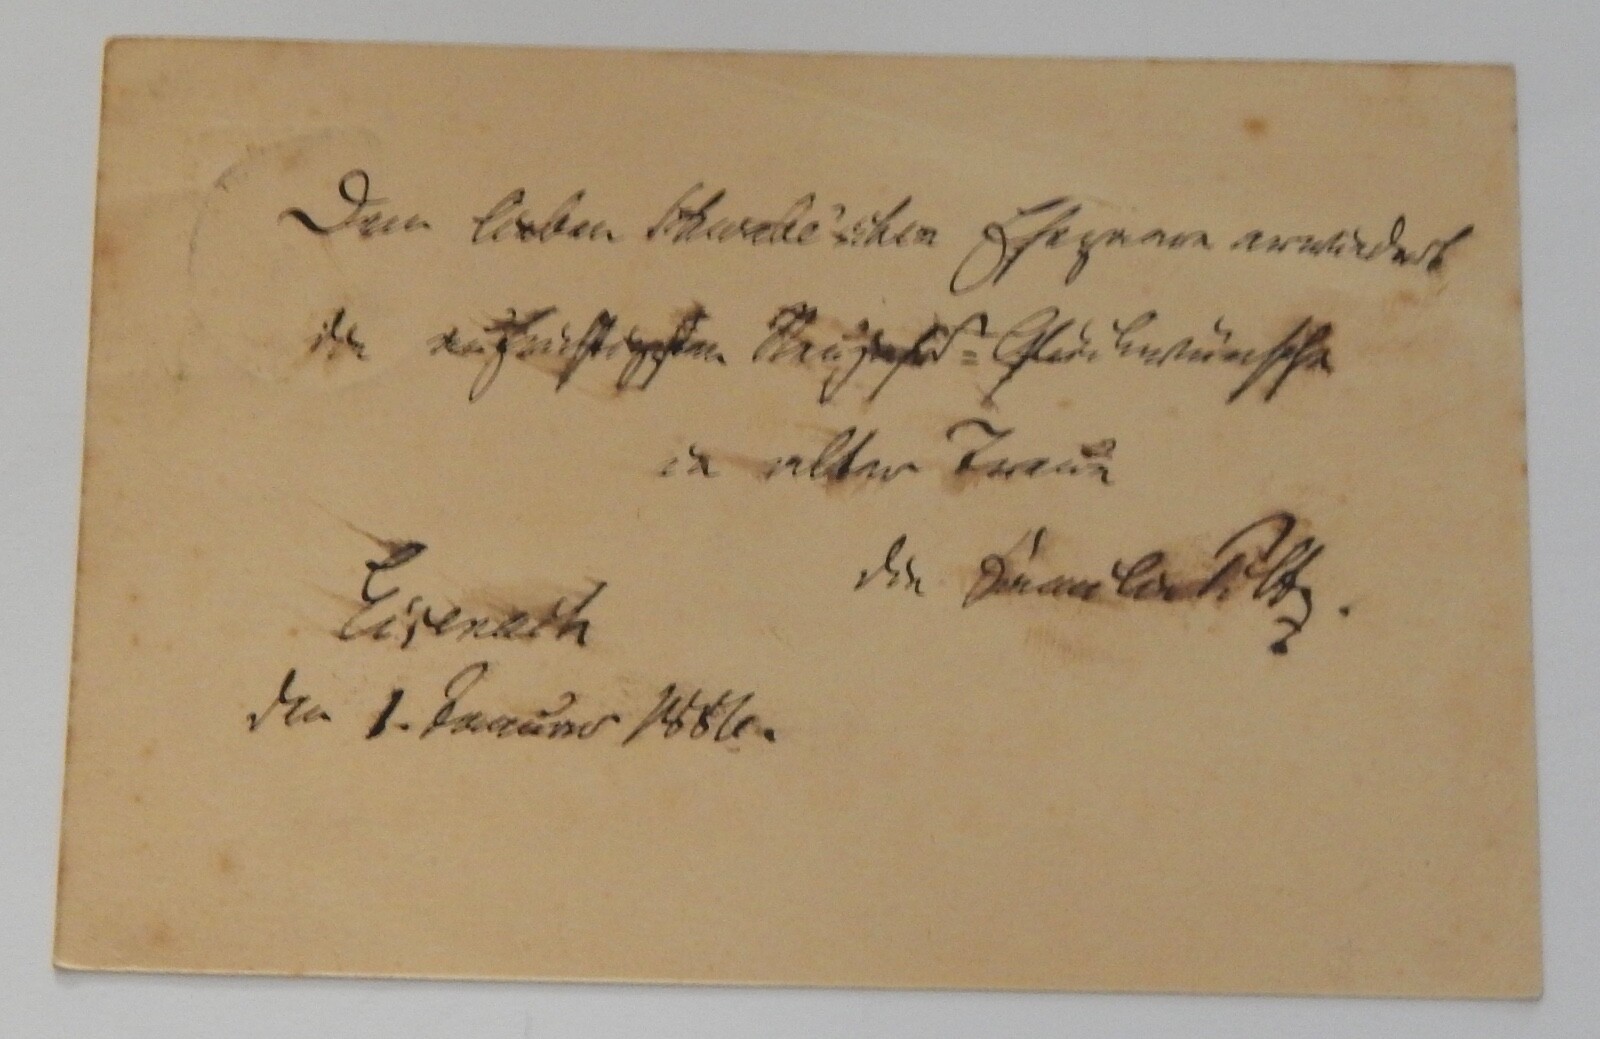 Dem lieben Schwabe'schen Ehepaare erwiedert
die aufrichtigsten Neujahrs=Glückwünsche
in alter Treue
die Familie Piltz.
Eisenach
den 1. Januar 1886.